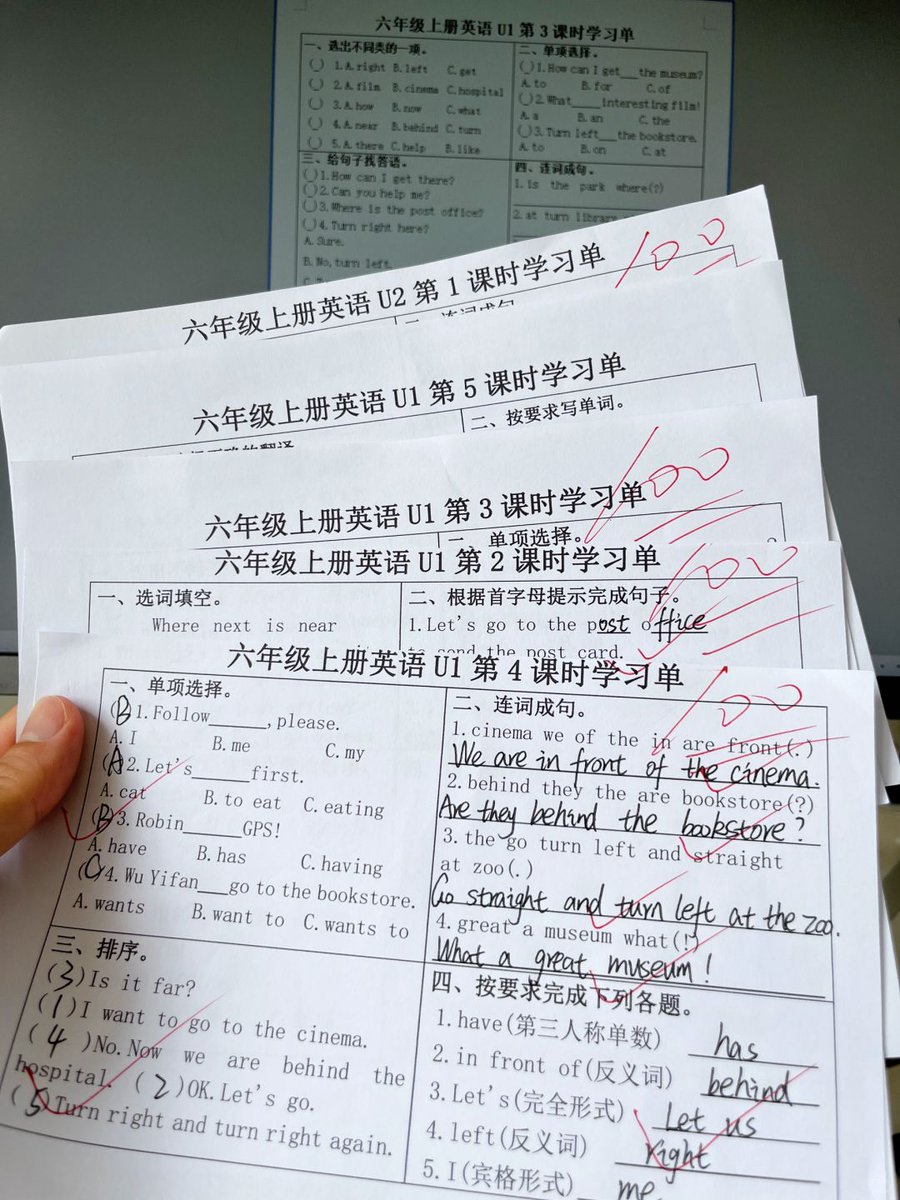 六年级上册英语U1第3课时学习单
一、选出不同类的一项。
( ) 1.A.right B.left C.get
( ) 2.A.film B.cinema C.hospital
( ) 3.A.how B.now C.what
( ) 4.A.near B.behind C.turn
( ) 5.A.there C.help B.like
二、单项选择。
( )1.How can I get___the museum?
A.to B.for C.of
( )2.What____interesting film!
A.a B.an C.the
( )3.Turn left___the bookstore.
A.to B.on C.at
三、给句子找答语。
( )1.How can I get there?
( )2.Can you help me?
( )3.Where is the post office?
( )4.Turn right here?
A.Sure.
B.No,turn left.
四、连词成句。
1.is the park where(?)
2.at turn library
六年级上册英语U2第1课时学习单
100
六年级上册英语U1第5课时学习单
二、按要求写单词。
六年级上册英语U1第3课时学习单
100
一、单项选择。
六年级上册英语U1第2课时学习单
100
一、选词填空。
Where next is near
二、根据首字母提示完成句子。
1.Let's go to the post office
to send the post card.
六年级上册英语U1第4课时学习单
100
一、单项选择。
(B)1.Follow_____,please.
A.I B.me C.my
(A)2.Let's_____first.
A.eat B.to eat C.eating
(B)3.Robin_____GPS!
A.have B.has C.having
(C)4.Wu Yifan___go to the bookstore.
A.wants B.want to C.wants to
二、连词成句。
1.cinema we of the in are front(.)
We are in front of the cinema.
2.behind they the are bookstore(?)
Are they behind the bookstore?
3.the go turn left and straight
at zoo(.)
Go straight and turn left at the zoo.
4.great a museum what(!)
What a great museum!
三、排序。
(3)Is it far?
(1)I want to go to the cinema.
(4)No.Now we are behind the
hospital. (2)OK.Let's go.
(5)Turn right and turn right again.
四、按要求完成下列各题。
1.have(第三人称单数) has
2.in front of(反义词) behind
3.Let's(完全形式) Let us
4.left(反义词) right
5.I(宾格形式) me